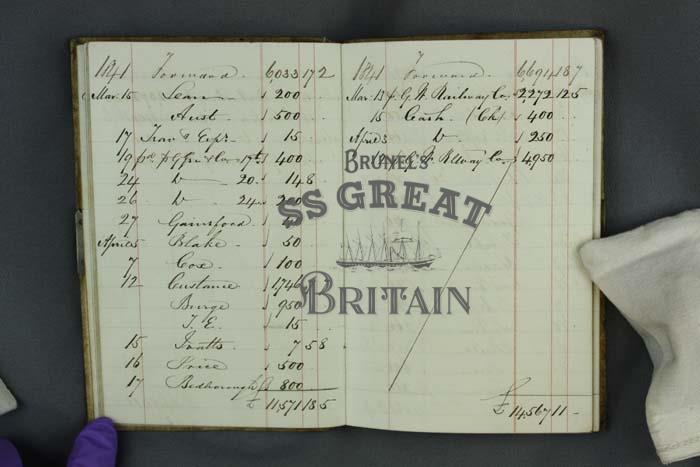 1841 Forward. 6,033 17 2
Mar. 15 200
Aust 500
17 Trav & Exps 15
19 17th 400
24 Do 20. 148
26 Do 24 200
27 Gainsford
April 5 Blake 50
7 Coxe 100
12 Custance 1746
Burge 950
J. E. 15
15 7 5 8
16 Price 500
17 Bedborough 800
£ 11,571 18 5
1841 Forward. 6,694 18 7
Mar. 13 p. G W Railway Co. 2,272 12 5
15 Cash (CK) 400
April 3 Do 250
G W Rlway Co. 4,950
£ 14,567 11 -
BRUNEL'S
SS GREAT
BRITAIN